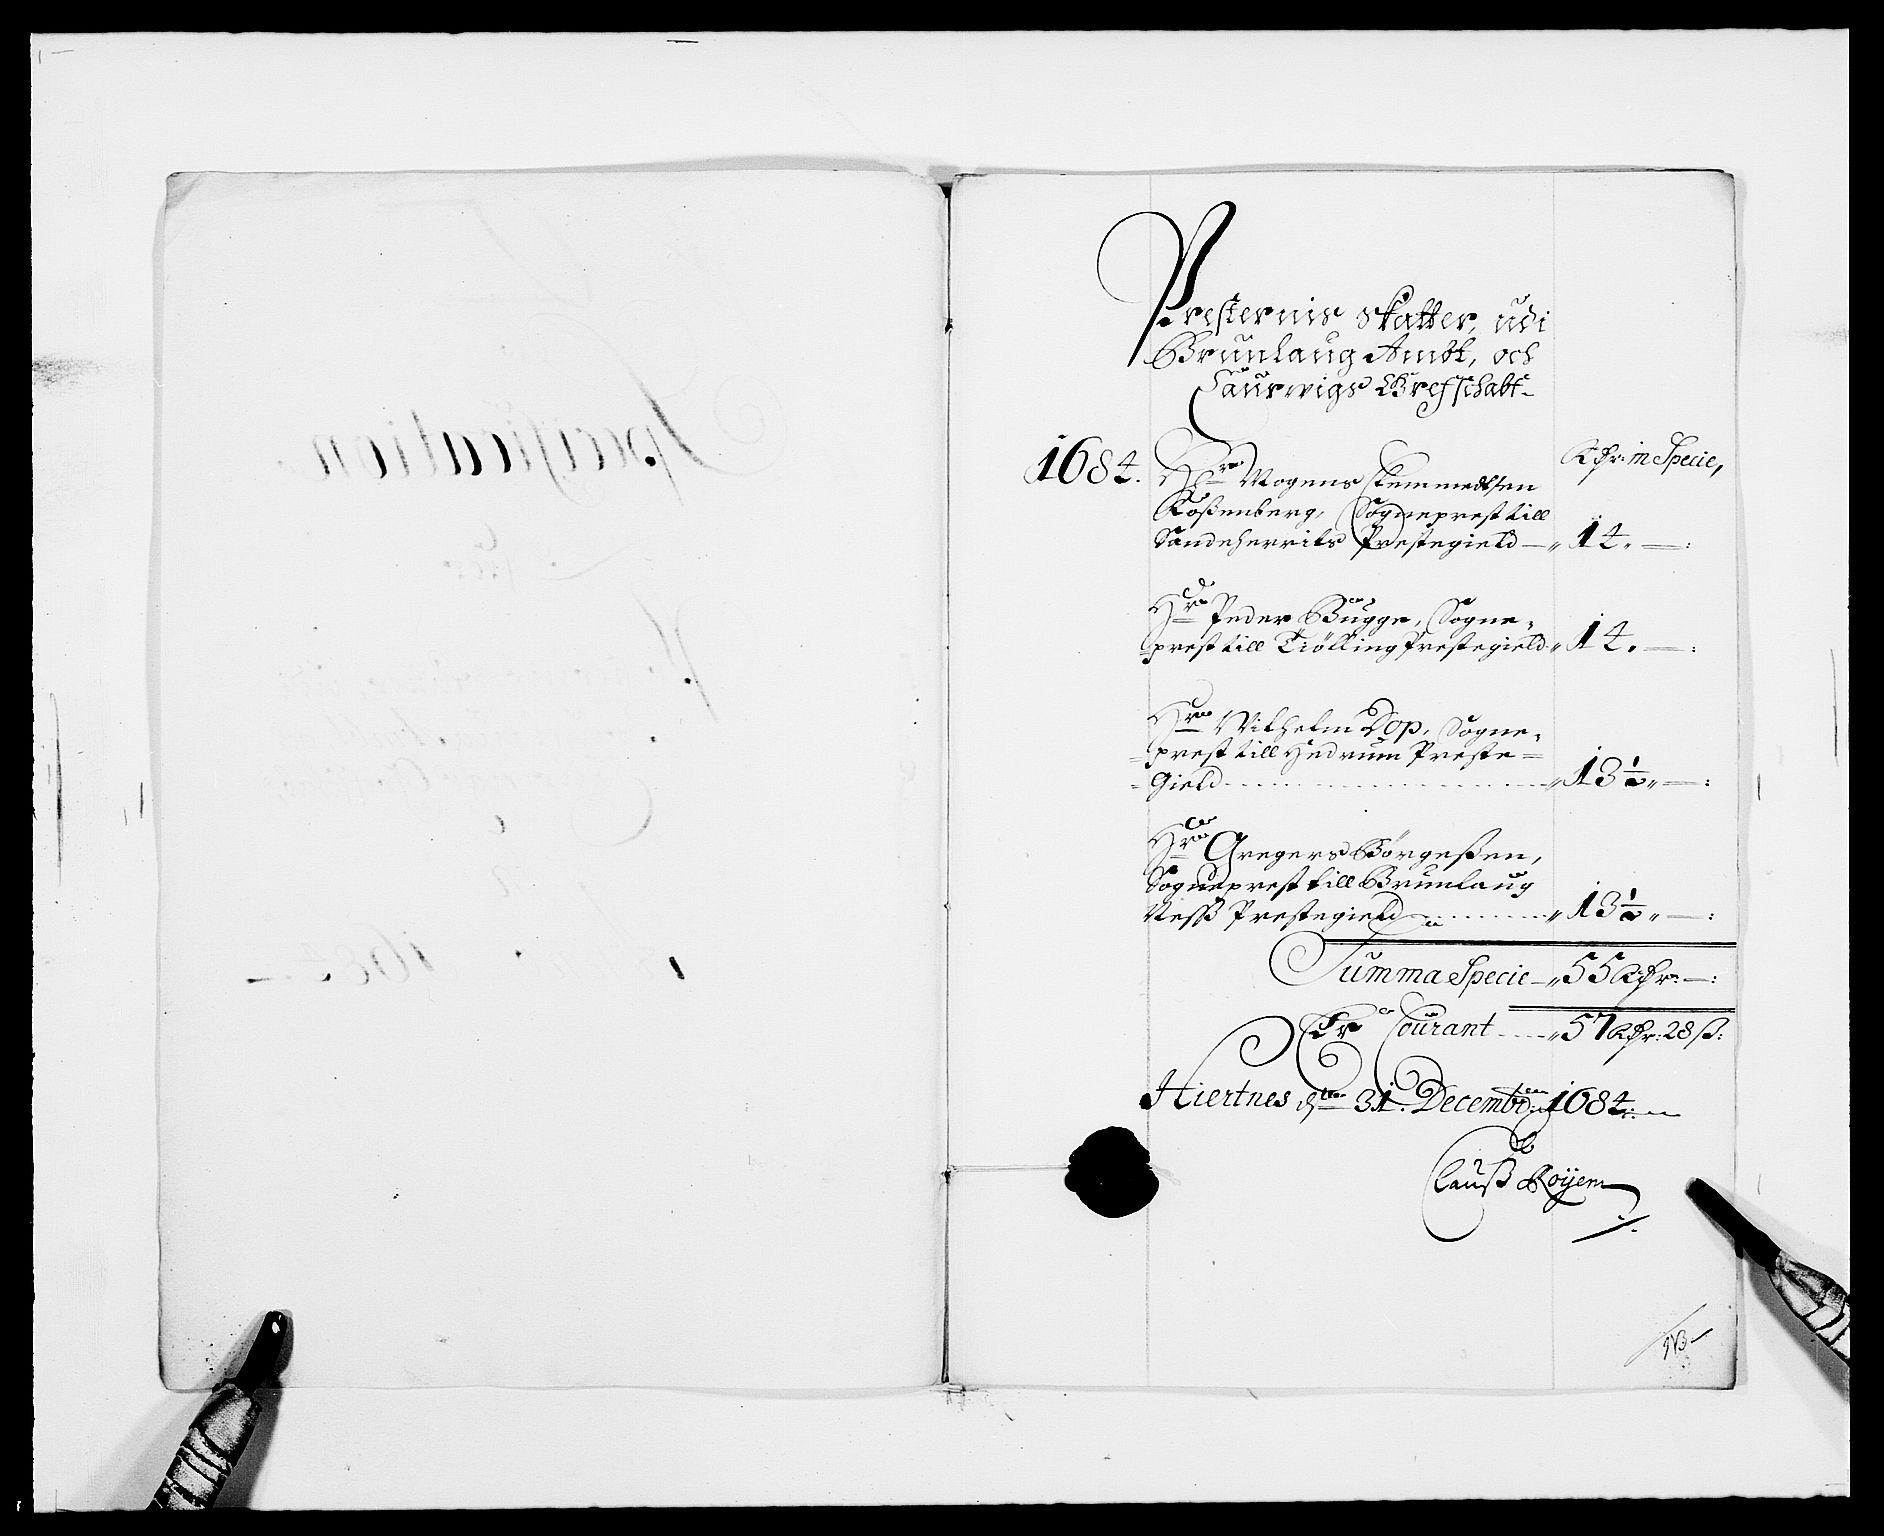 Presternis skatter, udi
Brunlaug Ambt, och
Laurwigs Grefschabt
1684.
Rdr: in Specie,
Hr Mogens
Roßenberg, Sogneprest till
Sandeherrits Prestegield — „ 14. — :
Hr Peder Bugge, Sogne-
prest till Tiølling Prestegield „ 14. — :
Hr Wilhelm Dop, Sogne-
prest till Hedrum Preste-
Gield „ 13½ „ — :
Hr Gregers Børgeßen,
Sogneprest till Brunlaug
Neß Prestegield „ 13½ „ — :
Summa Specie — „ 55 Rdr: — :
Er Courant „ 57 Rdr: 28 ß:
Hiertnes den 31. Decembr: 1684.
Clauß Røyem